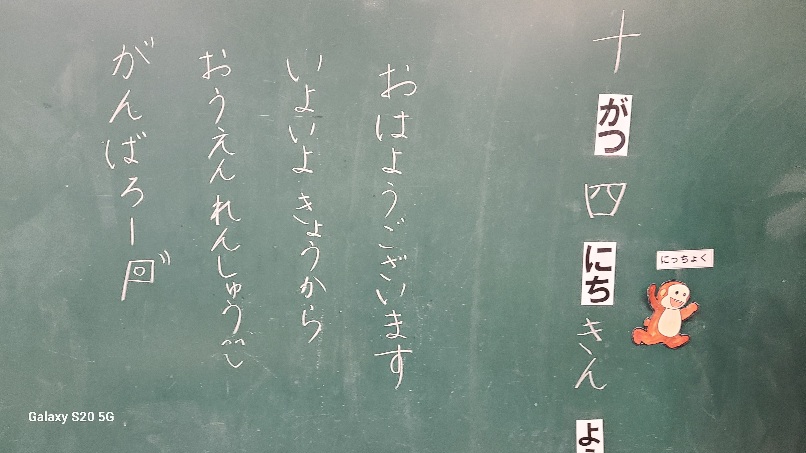 にっちょく
十がつ四にちきんよ
おはようございます
いよいよきょうから
おうえんれんしゅう
がんばろー
Galaxy S20 5G